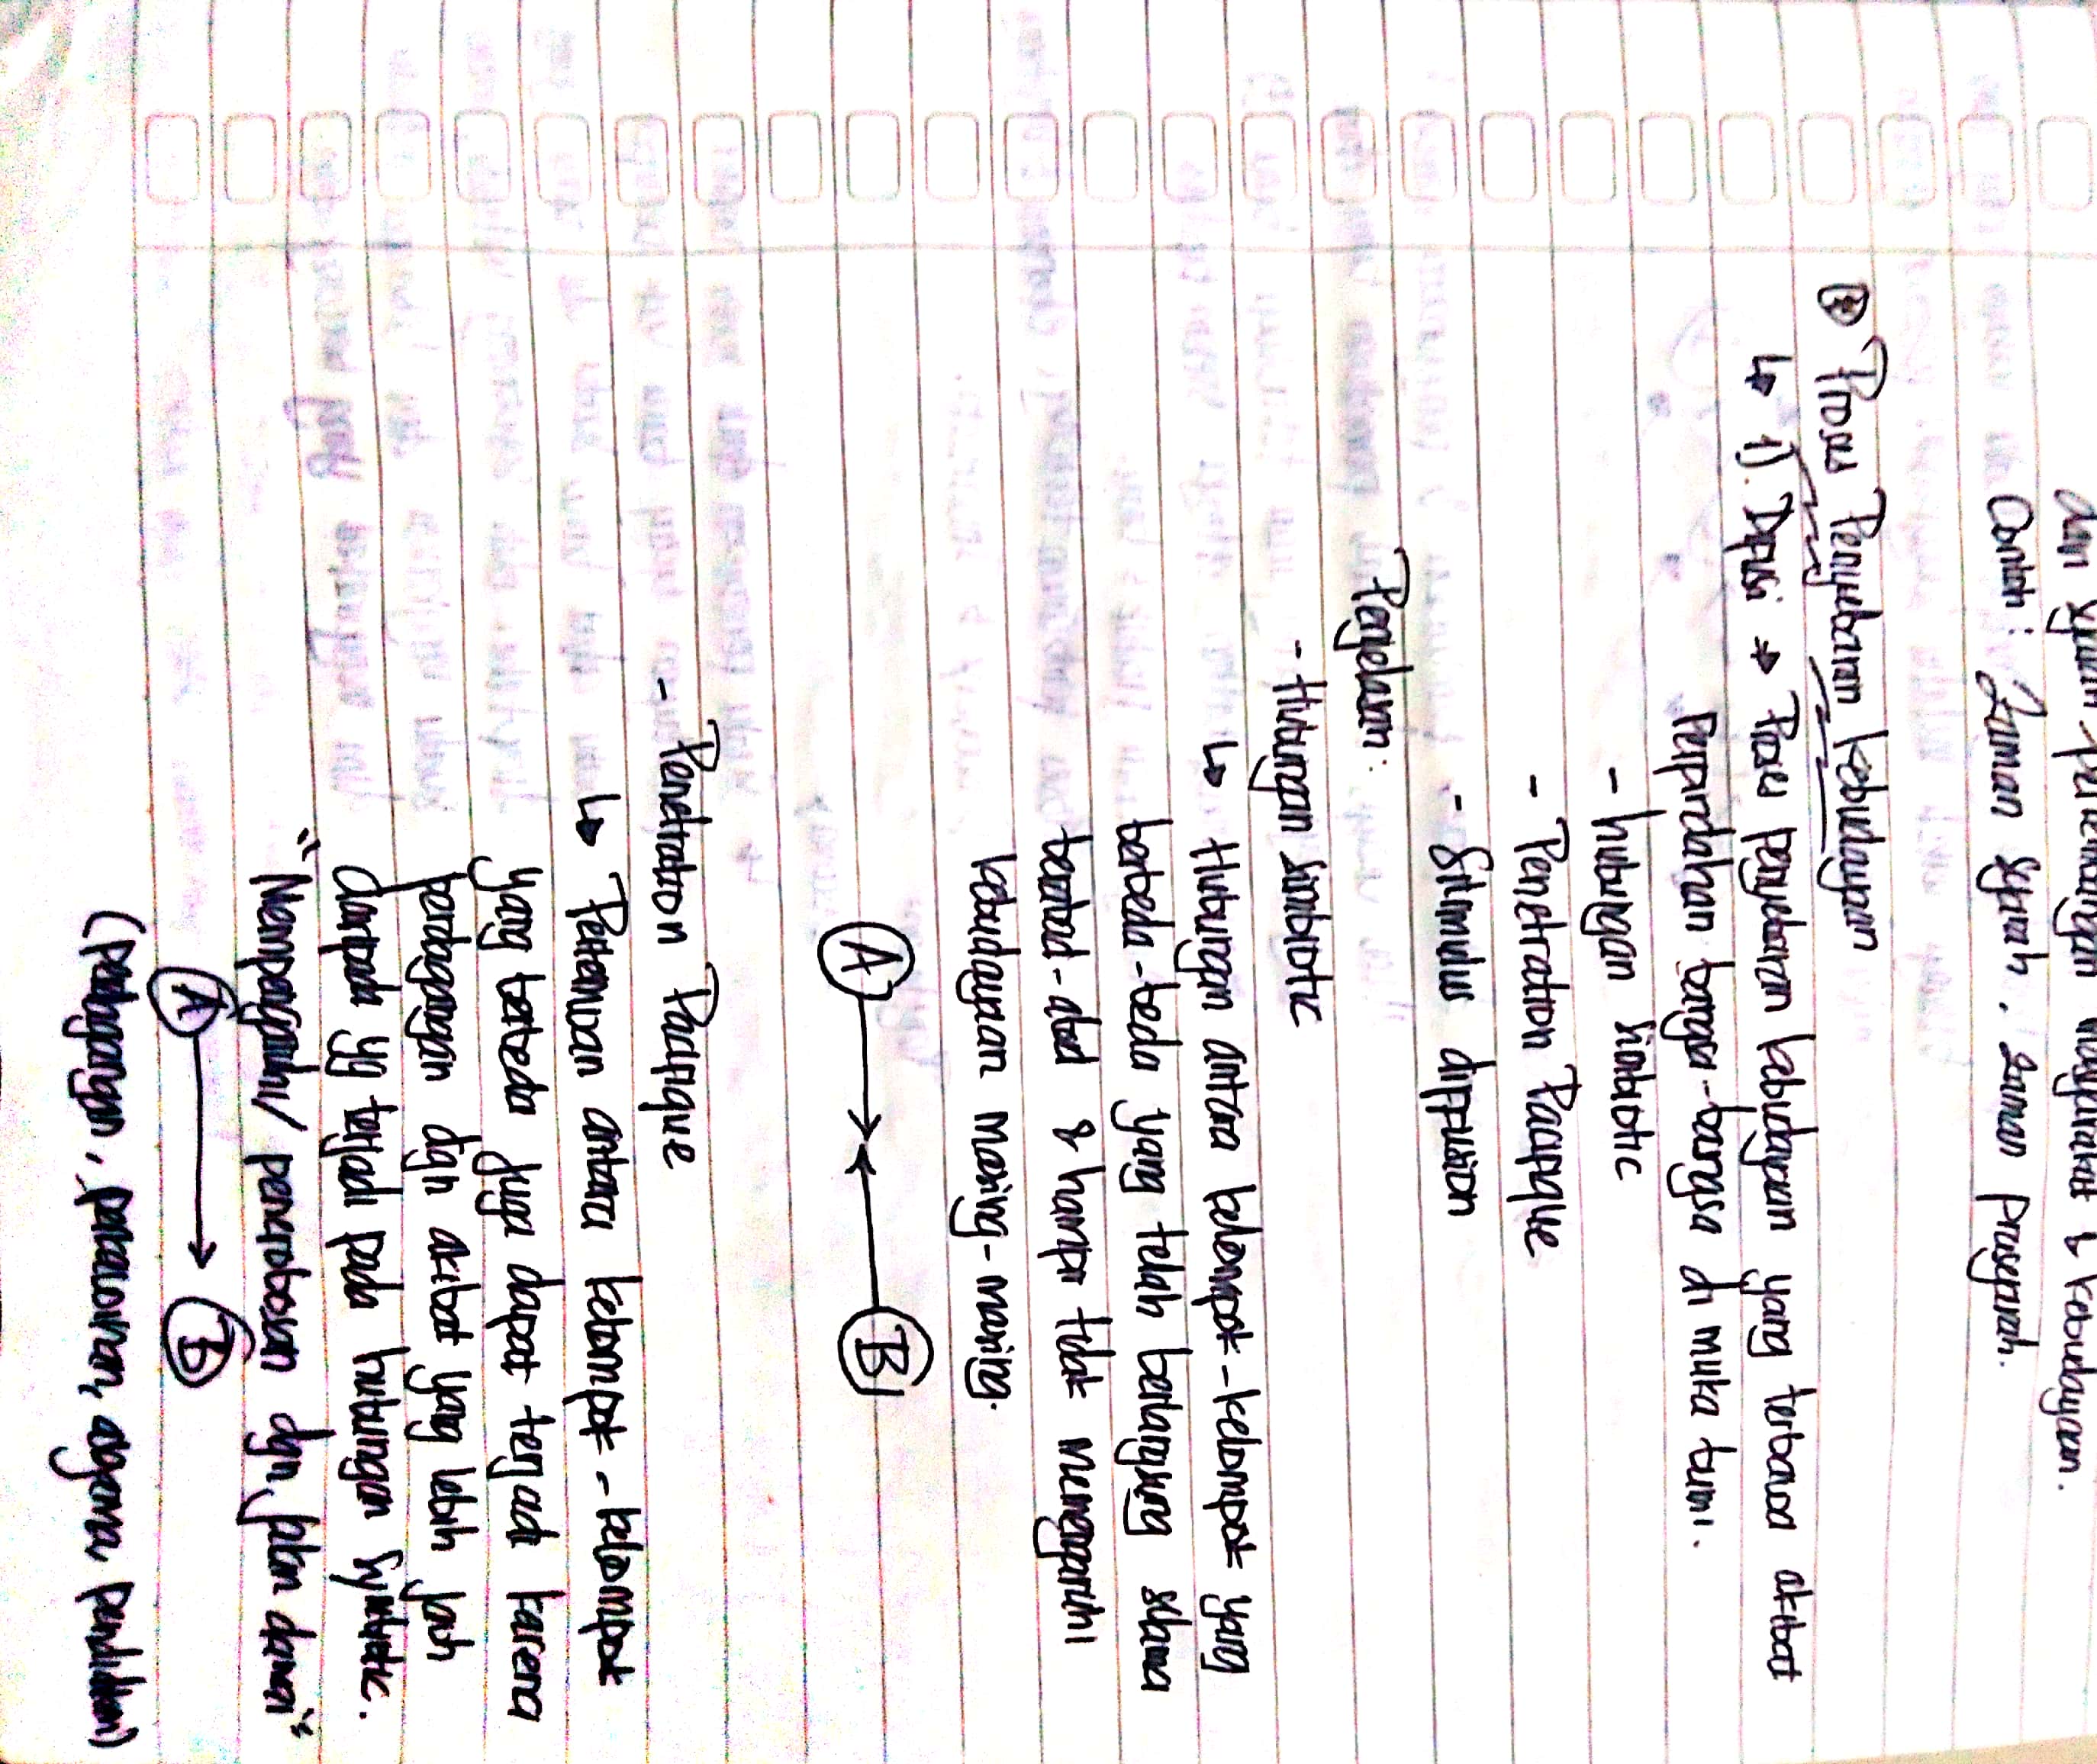 dan sejarah perkembangan masyarakat & kebudayaan.
Contoh : Zaman Sejarah, zaman prasejarah.
Proses Penyebaran kebudayaan
↳ 1). Difusi → Proses penyebaran kebudayaan yang terbawa akibat
perpindahan bangsa-bangsa di muka bumi.
- hubungan simbiotic
- Penetration Pacifique
- Stimulus diffusion
Penjelasan:
- Hubungan simbiotic
↳ Hubungan antara kelompok-kelompok yang
berbeda-beda yang telah berlangsung selama
berabad-abad & hampir tidak mempengaruhi
kebudayaan masing-masing.
A B
- Penetration Pacifique
↳ Pertemuan antara kelompok-kelompok
yang berbeda juga dapat terjadi karena
perdagangan dgn akibat yang lebih jauh
daripada yg terjadi pada hubungan symbiotic.
"Mempengaruhi/ penerobosan dgn jalan damai"
A B
(perdagangan, pelayaran, agama, pendidikan)